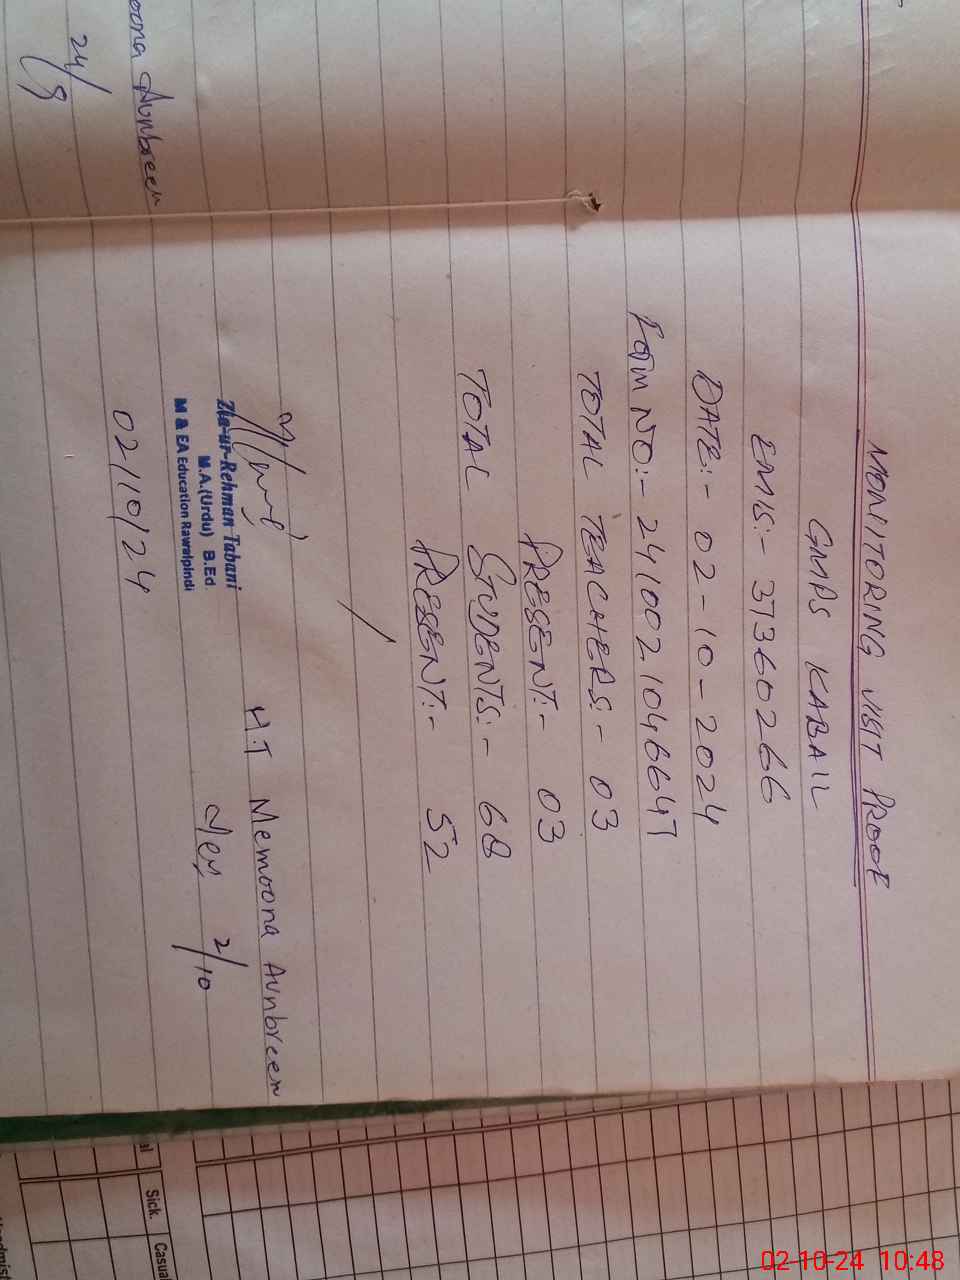 MONITORING VISIT PROOF
GMPS KABAIL
EMIS:- 37360266
DATE:- 02-10-2024
FORM NO:- 2410021046647
TOTAL TEACHERS:- 03
PRESENT:- 03
TOTAL STUDENTS:- 68
PRESENT:- 52
Zia-ur-Rehman Tabani
M.A.(Urdu) B.Ed
M & EA Education Rawalpindi
02/10/24
H.T Memoona Aunbreen
2/10
oona Aunbreen
24/9
Sick.
Casual
02-10-24 10:48